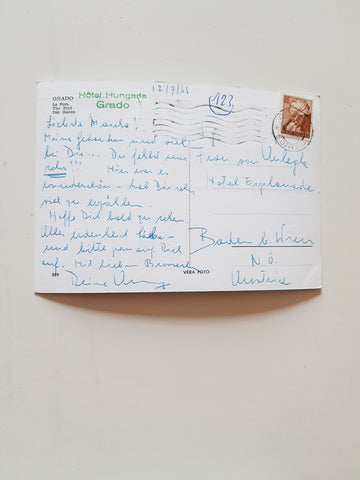 GRADO
Le Port
The Port
Der Hafen
Hôtel Hungaria
Grado
12/7/66
123
Liebste
Meine Gedanken sind viel
bei Dir... Du fehlst uns
sehr!!! Hier war es
wunderschön - hab Dir sehr
viel zu erzählen.
Hoffe Dich bald zu sehn
Alles
und bitte pass auf Dich
auf. Mit lieben
Deine
Frau von
Hotel Esplanade
Baden b. Wien
N.Ö.
Austria
589
VERA FOTO